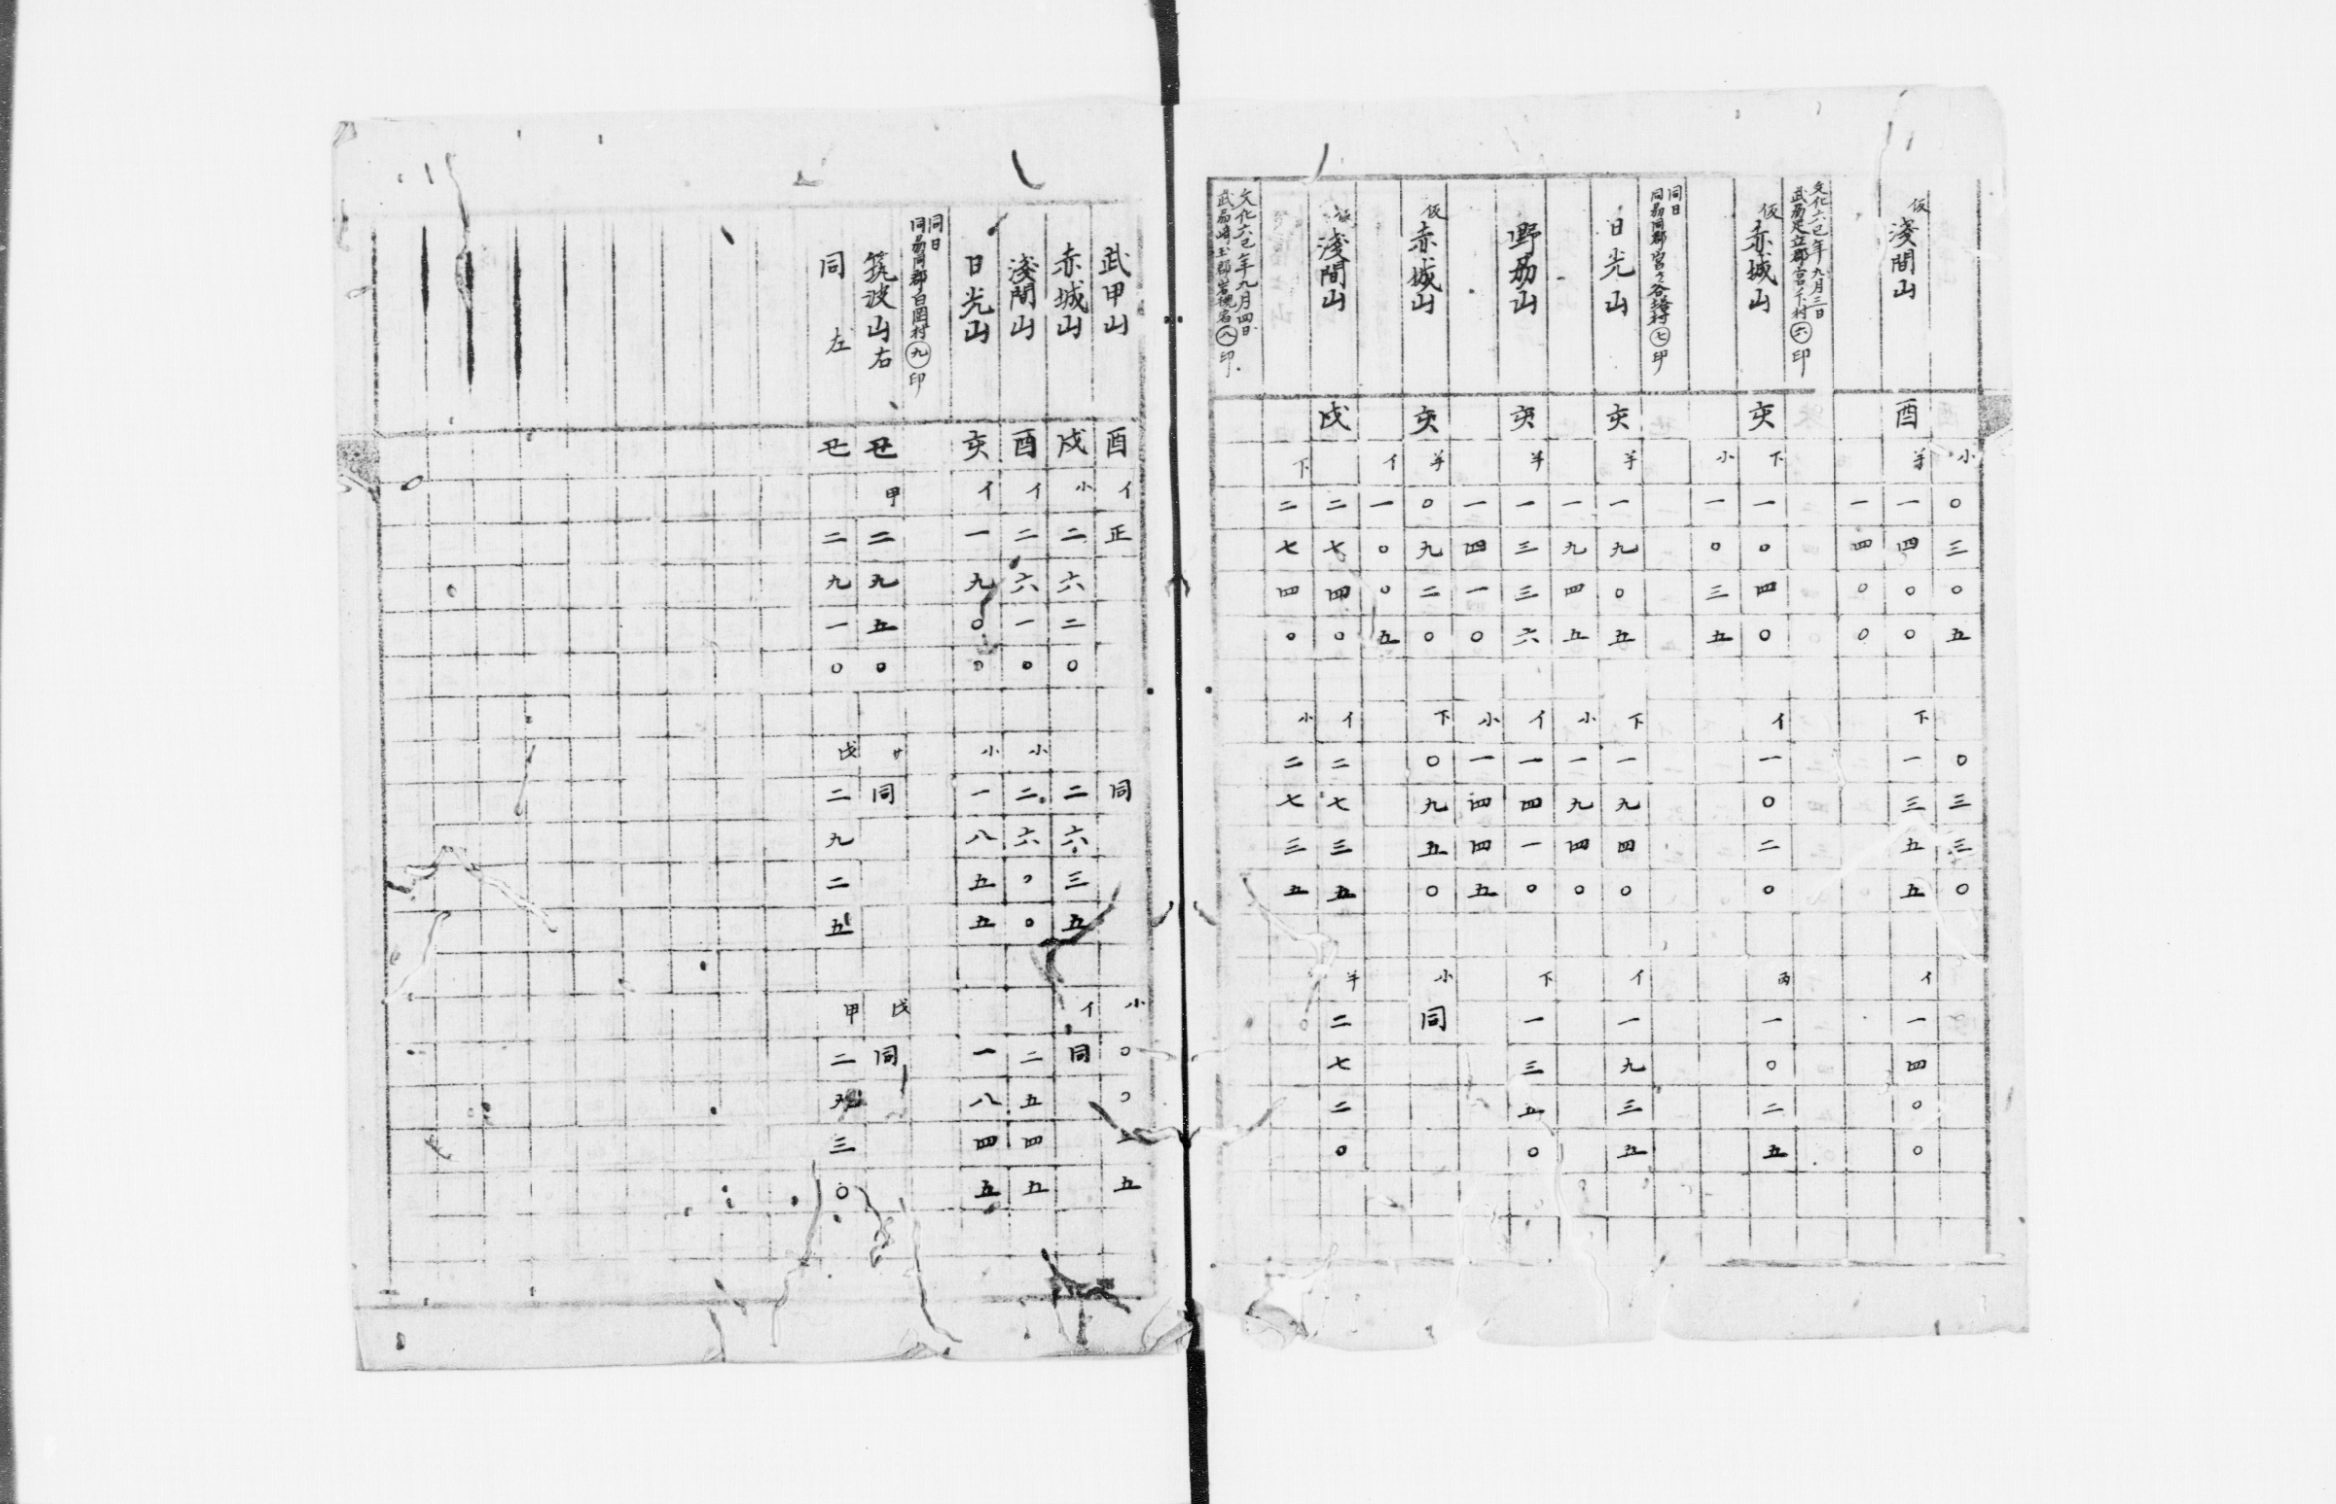 小 〇三〇五 〇三三〇
仮 淺間山 酉 羊 一四〇〇 下 一三五五 イ 一四〇〇
一四〇〇
文化六巳年九月三日
武刕足立郡宮ケ下村㊅印
仮 赤城山 亥 下 一〇四〇 イ 一〇二〇 丙 一〇二五
小 一〇三五
同日
同刕同郡宮ケ谷塔村㊆印
日光山 亥 羊 一九〇五 下 一九四〇 イ 一九三五
一九四五 小 一九四〇
野刕山 亥 羊 一三三六 イ 一四一〇 下 一三五〇
一四一〇 小 一四四五
仮 赤城山 亥 羊 〇九二〇 下 〇九五〇 小 同
イ 一〇〇五
淺間山 戌 二七四〇 イ 二七三五 羊 二七二〇
下 二七四〇 小 二七三五
文化六巳年九月四日
武刕埼玉郡岩槻宿㊇印
武甲山 酉 イ 正 同 小 〇〇 五
赤城山 戌 小 二六二〇 二六三五 イ 同
淺間山 酉 イ 二六一〇 小 二六〇〇 二五四五
日光山 亥 イ 一九〇〇 小 一八五五 一八四五
同日
同刕同郡白岡村㊈印
筑波山右 丑 甲 二九五〇 同 戊 同
同 左 丑 二九一〇 戊 二九二五 甲 二 三〇